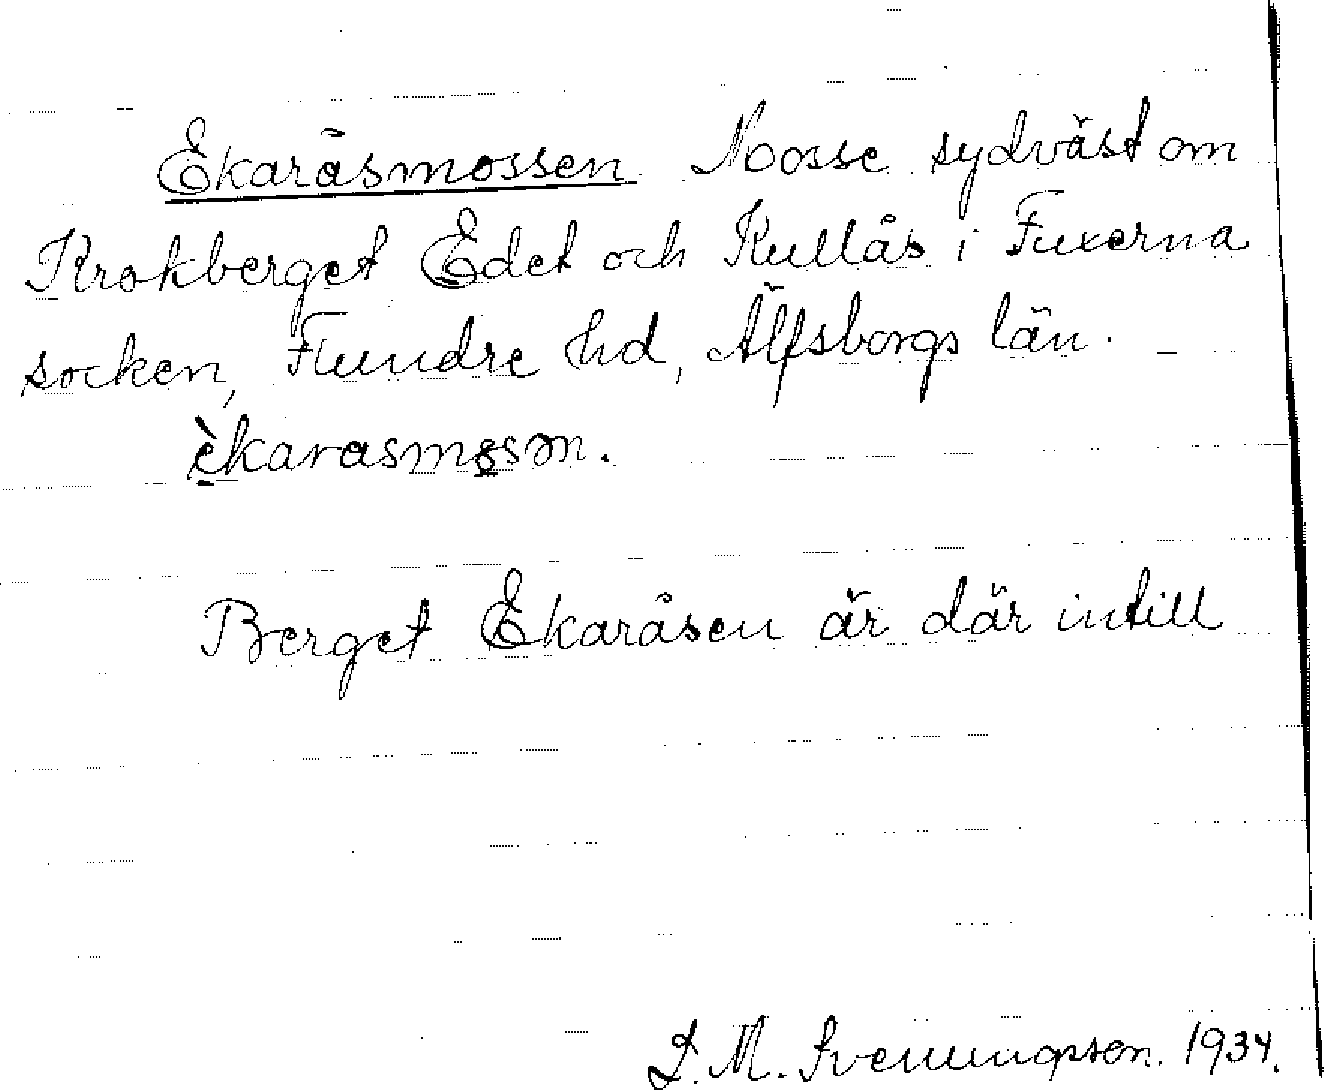 Ekaråsmossen Mosse sydväst om
Krokberget Edet och Kullås i Fuxerna
socken, Flundre hd, Älfsborgs län.
èkarasmosm.
Berget Ekaråsen är där intill
M. Svenningsson. 1934.